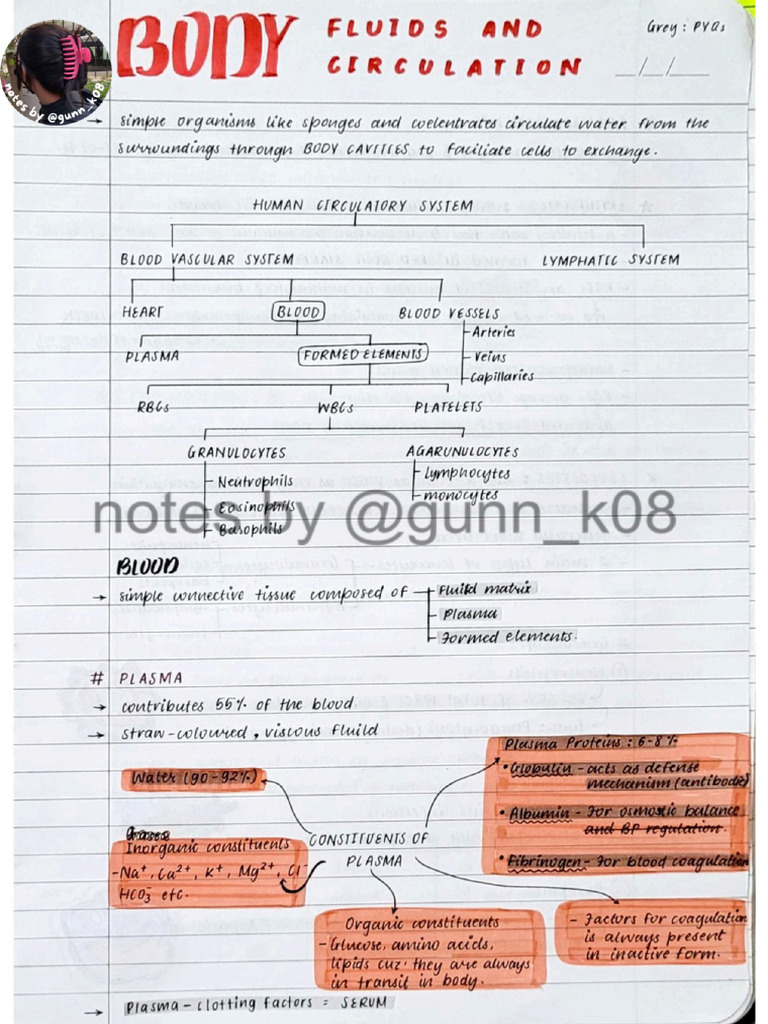 notes by @gunn_k08
BODY FLUIDS AND
CIRCULATION
Grey: PYQs
_/_/__
→ simple organisms like sponges and coelentrates circulate water from the
surroundings through BODY CAVITIES to faciliate cells to exchange.
HUMAN CIRCULATORY SYSTEM
BLOOD VASCULAR SYSTEM
LYMPHATIC SYSTEM
HEART
BLOOD
BLOOD VESSELS
- Arteries
- Veins
- Capillaries
PLASMA
FORMED ELEMENTS
RBCs
WBCs
PLATELETS
GRANULOCYTES
- Neutrophils
- Eosinophils
- Basophils
AGARUNULOCYTES
- Lymphocytes
- monocytes
notes by @gunn_k08
BLOOD
→ simple connective tissue composed of - Fluild matrix
- Plasma
- Formed elements.
# PLASMA
→ contributes 55% of the blood
→ straw-coloured, viscous fluild
CONSTITUENTS OF
PLASMA
Water (90-92%)
Plasma Proteins : 6-8%
• Globulin - acts as defense
mechanism (antibodies)
• Albumin - For osmotic balance
and BP regulation.
• Fibrinogen - For blood coagulation
Gases
Inorganic constituents
- Na⁺, Ca²⁺, K⁺, Mg²⁺, Cl⁻
HCO₃⁻ etc.
Organic constituents
- Glucose, amino acids,
lipids cuz they are always
in transit in body.
- Factors for coagulation
is always present
in inactive form.
→ Plasma - clotting factors = SERUM